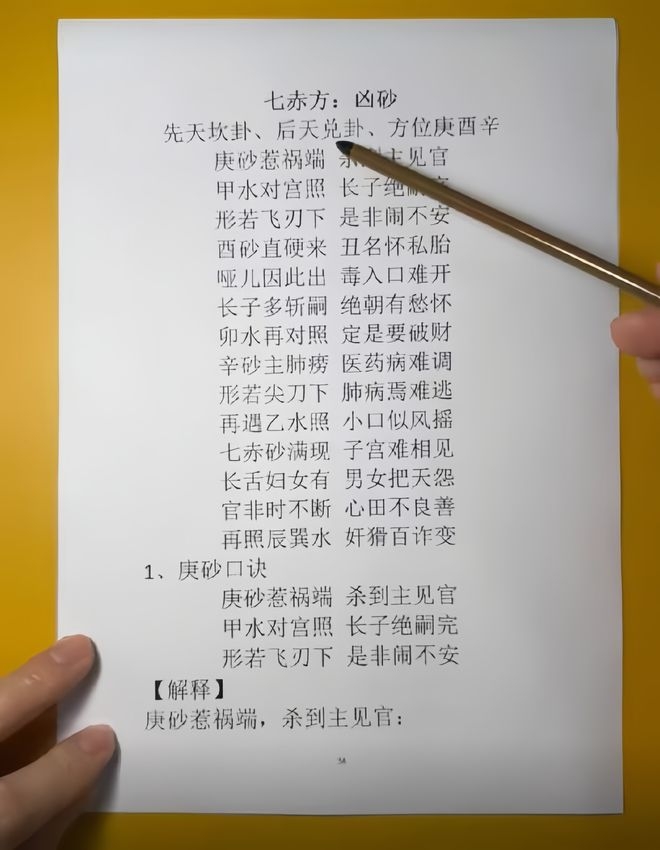 七赤方：凶砂
先天坎卦、后天兑卦、方位庚酉辛
庚砂惹祸端 杀到主见官
甲水对宫照 长子绝嗣完
形若飞刃下 是非闹不安
酉砂直硬来 丑名怀私胎
哑儿因此出 毒入口难开
长子多斩嗣 绝朝有愁怀
卯水再对照 定是要破财
辛砂主肺痨 医药病难调
形若尖刀下 肺病焉难逃
再遇乙水照 小口似风摇
七赤砂满现 子宫难相见
长舌妇女有 男女把天怨
官非时不断 心田不良善
再照辰巽水 奸猾百诈变
1、庚砂口诀
庚砂惹祸端 杀到主见官
甲水对宫照 长子绝嗣完
形若飞刃下 是非闹不安
【解释】
庚砂惹祸端，杀到主见官：